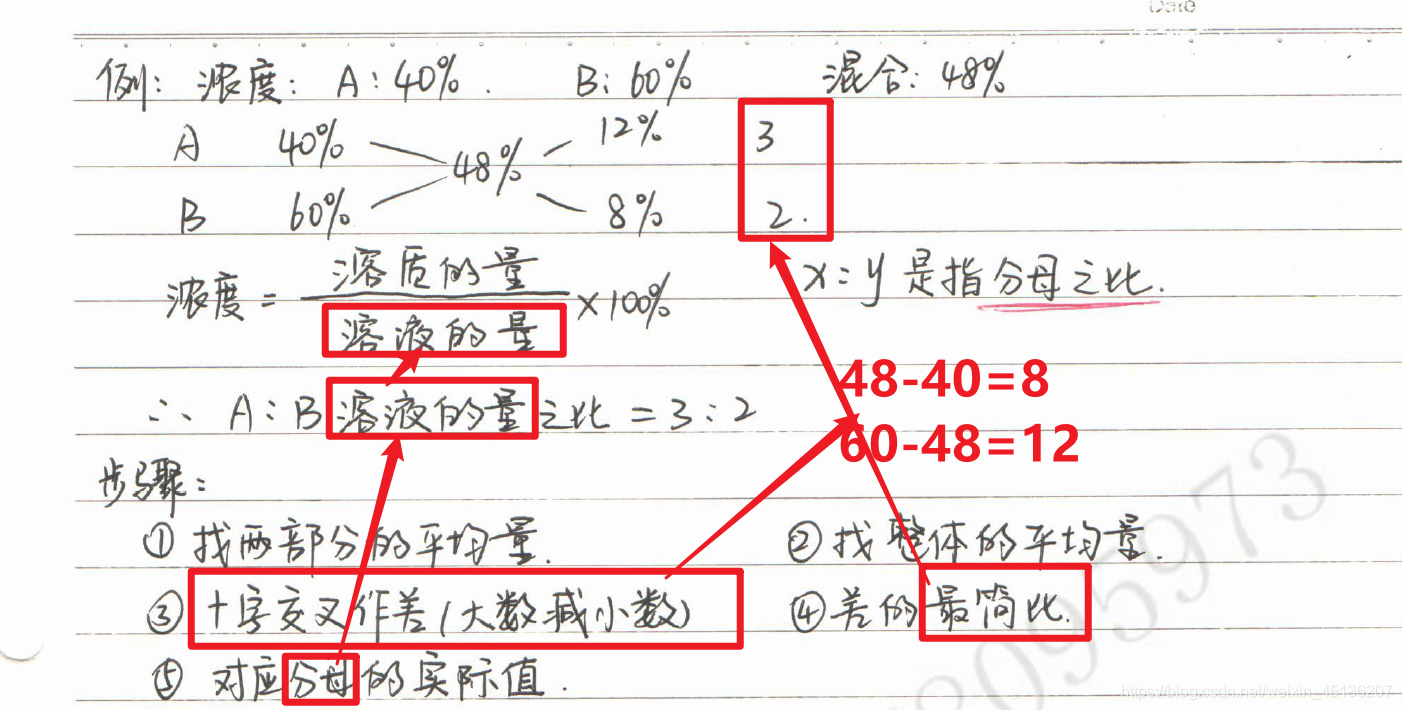 Date
例: 浓度: A:40%. B: 60% 混合: 48%
A 40% 12% 3
48%
B 60% 8% 2.
浓度 = 溶质的量 / 溶液的量 ×100%
x:y 是指分母之比.
48-40=8
∴ A:B溶液的量之比 = 3:2
60-48=12
步骤:
① 找两部分的平均量. ② 找整体的平均量.
③ 十字交叉作差(大数减小数) ④ 差的最简比.
⑤ 对应分母的实际值.
8095973
https://blog.csdn.net/weixin_45136207